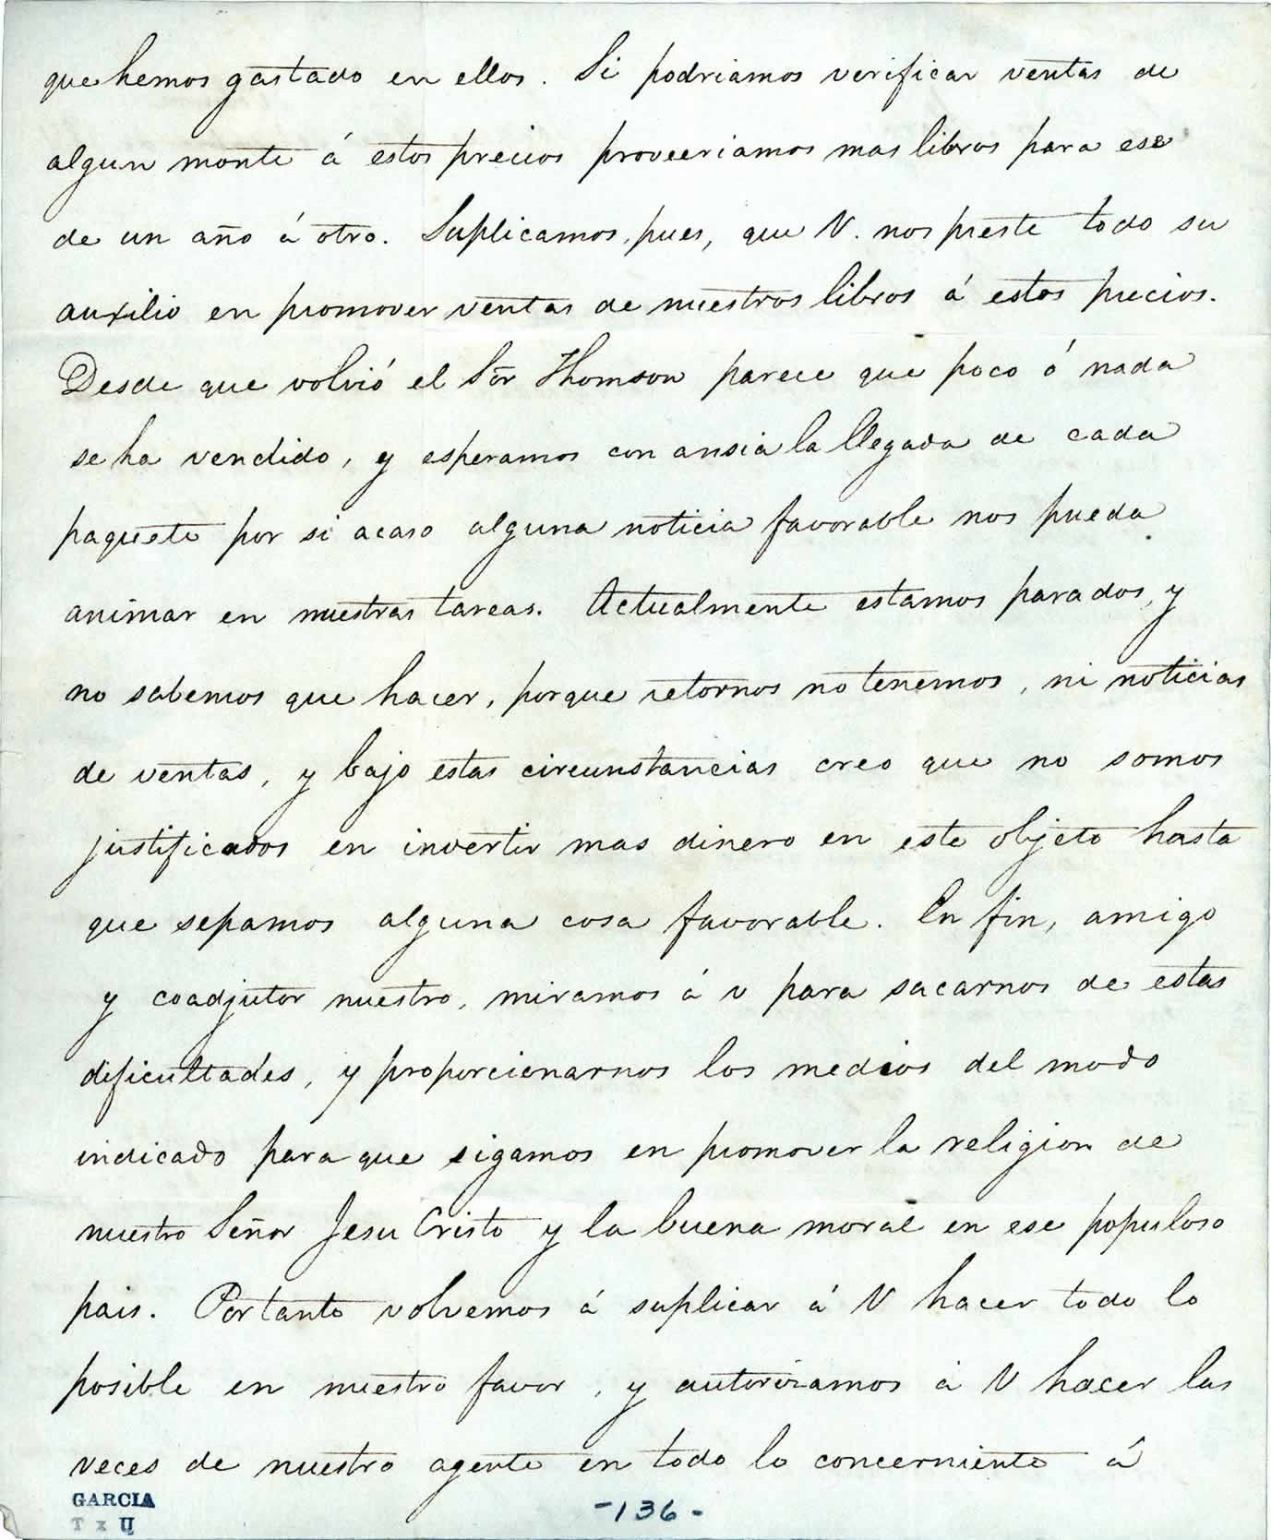 que hemos gastado en ellos. Si podriamos verificar ventas de
algun monte á estos precios proveeriamos mas libros para ese
de un año á otro. Suplicamos, pues, que V. nos preste todo su
auxilio en promover ventas de nuestros libros á estos precios.
Desde que volvió el Sōr Thomson parece que poco ó nada
se ha vendido, y esperamos con ansia la llegada de cada
paquete por si acaso alguna noticia favorable nos pueda
animar en nuestras tareas. Actualmente estamos parados, y
no sabemos que hacer, porque retornos no tenemos, ni noticias
de ventas, y bajo estas circunstancias creo que no somos
justificados en invertir mas dinero en este objeto hasta
que sepamos alguna cosa favorable. En fin, amigo
y coadjutor nuestro, miramos á v para sacarnos de estas
dificultades, y proporcionarnos los medios del modo
indicado para que sigamos en promover la religion de
nuestro Señor Jesu Cristo y la buena moral en ese populoso
pais. Por tanto volvemos á suplicar á V hacer todo lo
posible en nuestro favor, y autorizamos á V hacer las
veces de nuestro agente en todo lo concerniente á
GARCIA
T x U
-136-